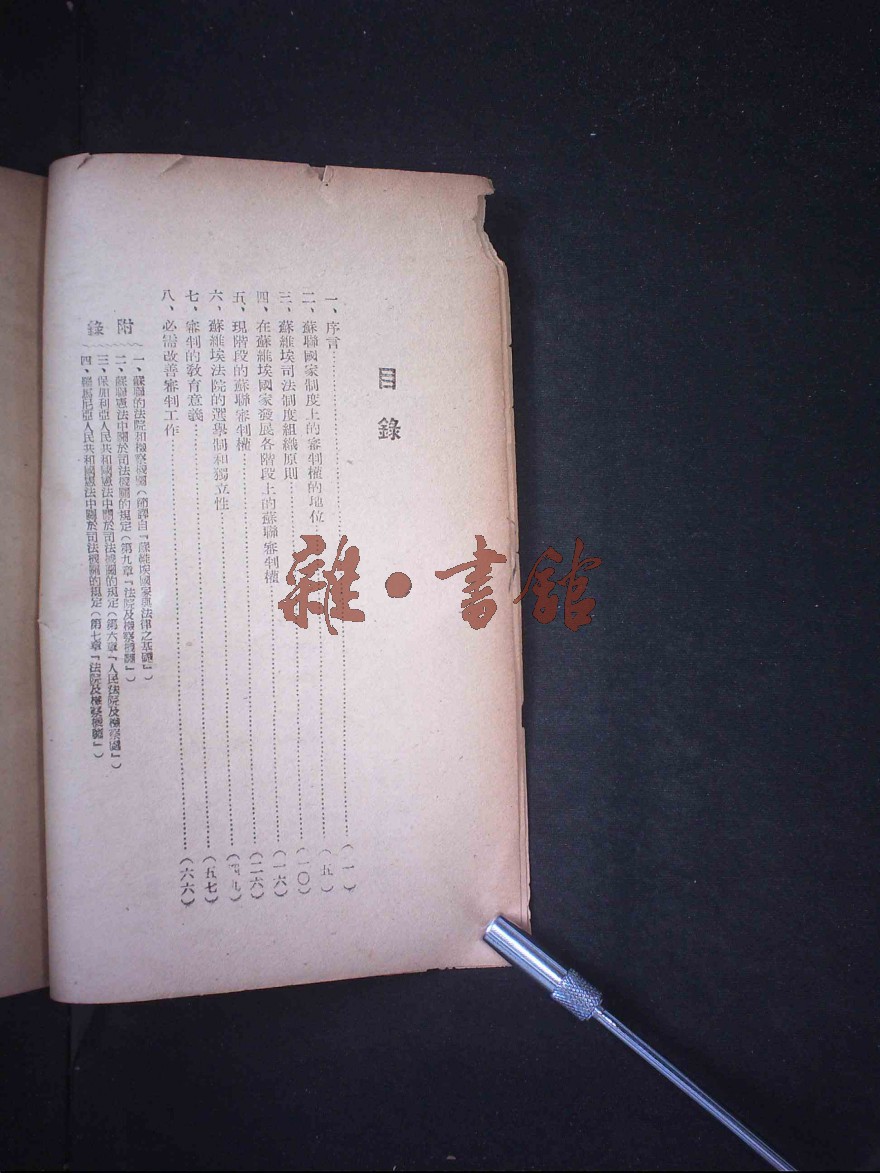 目錄
一、序言……（一）
二、蘇聯國家制度上的審判權的地位……（五）
三、蘇維埃司法制度組織原則……（一〇）
四、在蘇維埃國家發展各階段上的蘇聯審判權……（一六）
五、現階段的蘇聯審判權……（二六）
六、蘇維埃法院的選舉制和獨立性……（四九）
七、審判的教育意義……（五七）
八、必需改善審判工作……（六六）
附錄
一、蘇聯的法院和檢察機關（節譯自『蘇維埃國家與法律之基礎』）
二、蘇聯憲法中關於司法機關的規定（第九章『法院及檢察機關』）
三、保加利亞人民共和國憲法中關於司法機關的規定（第六章『人民法院及檢察署』）
四、羅馬尼亞人民共和國憲法中關於司法機關的規定（第七章『法院及檢察機關』）
雜·書館